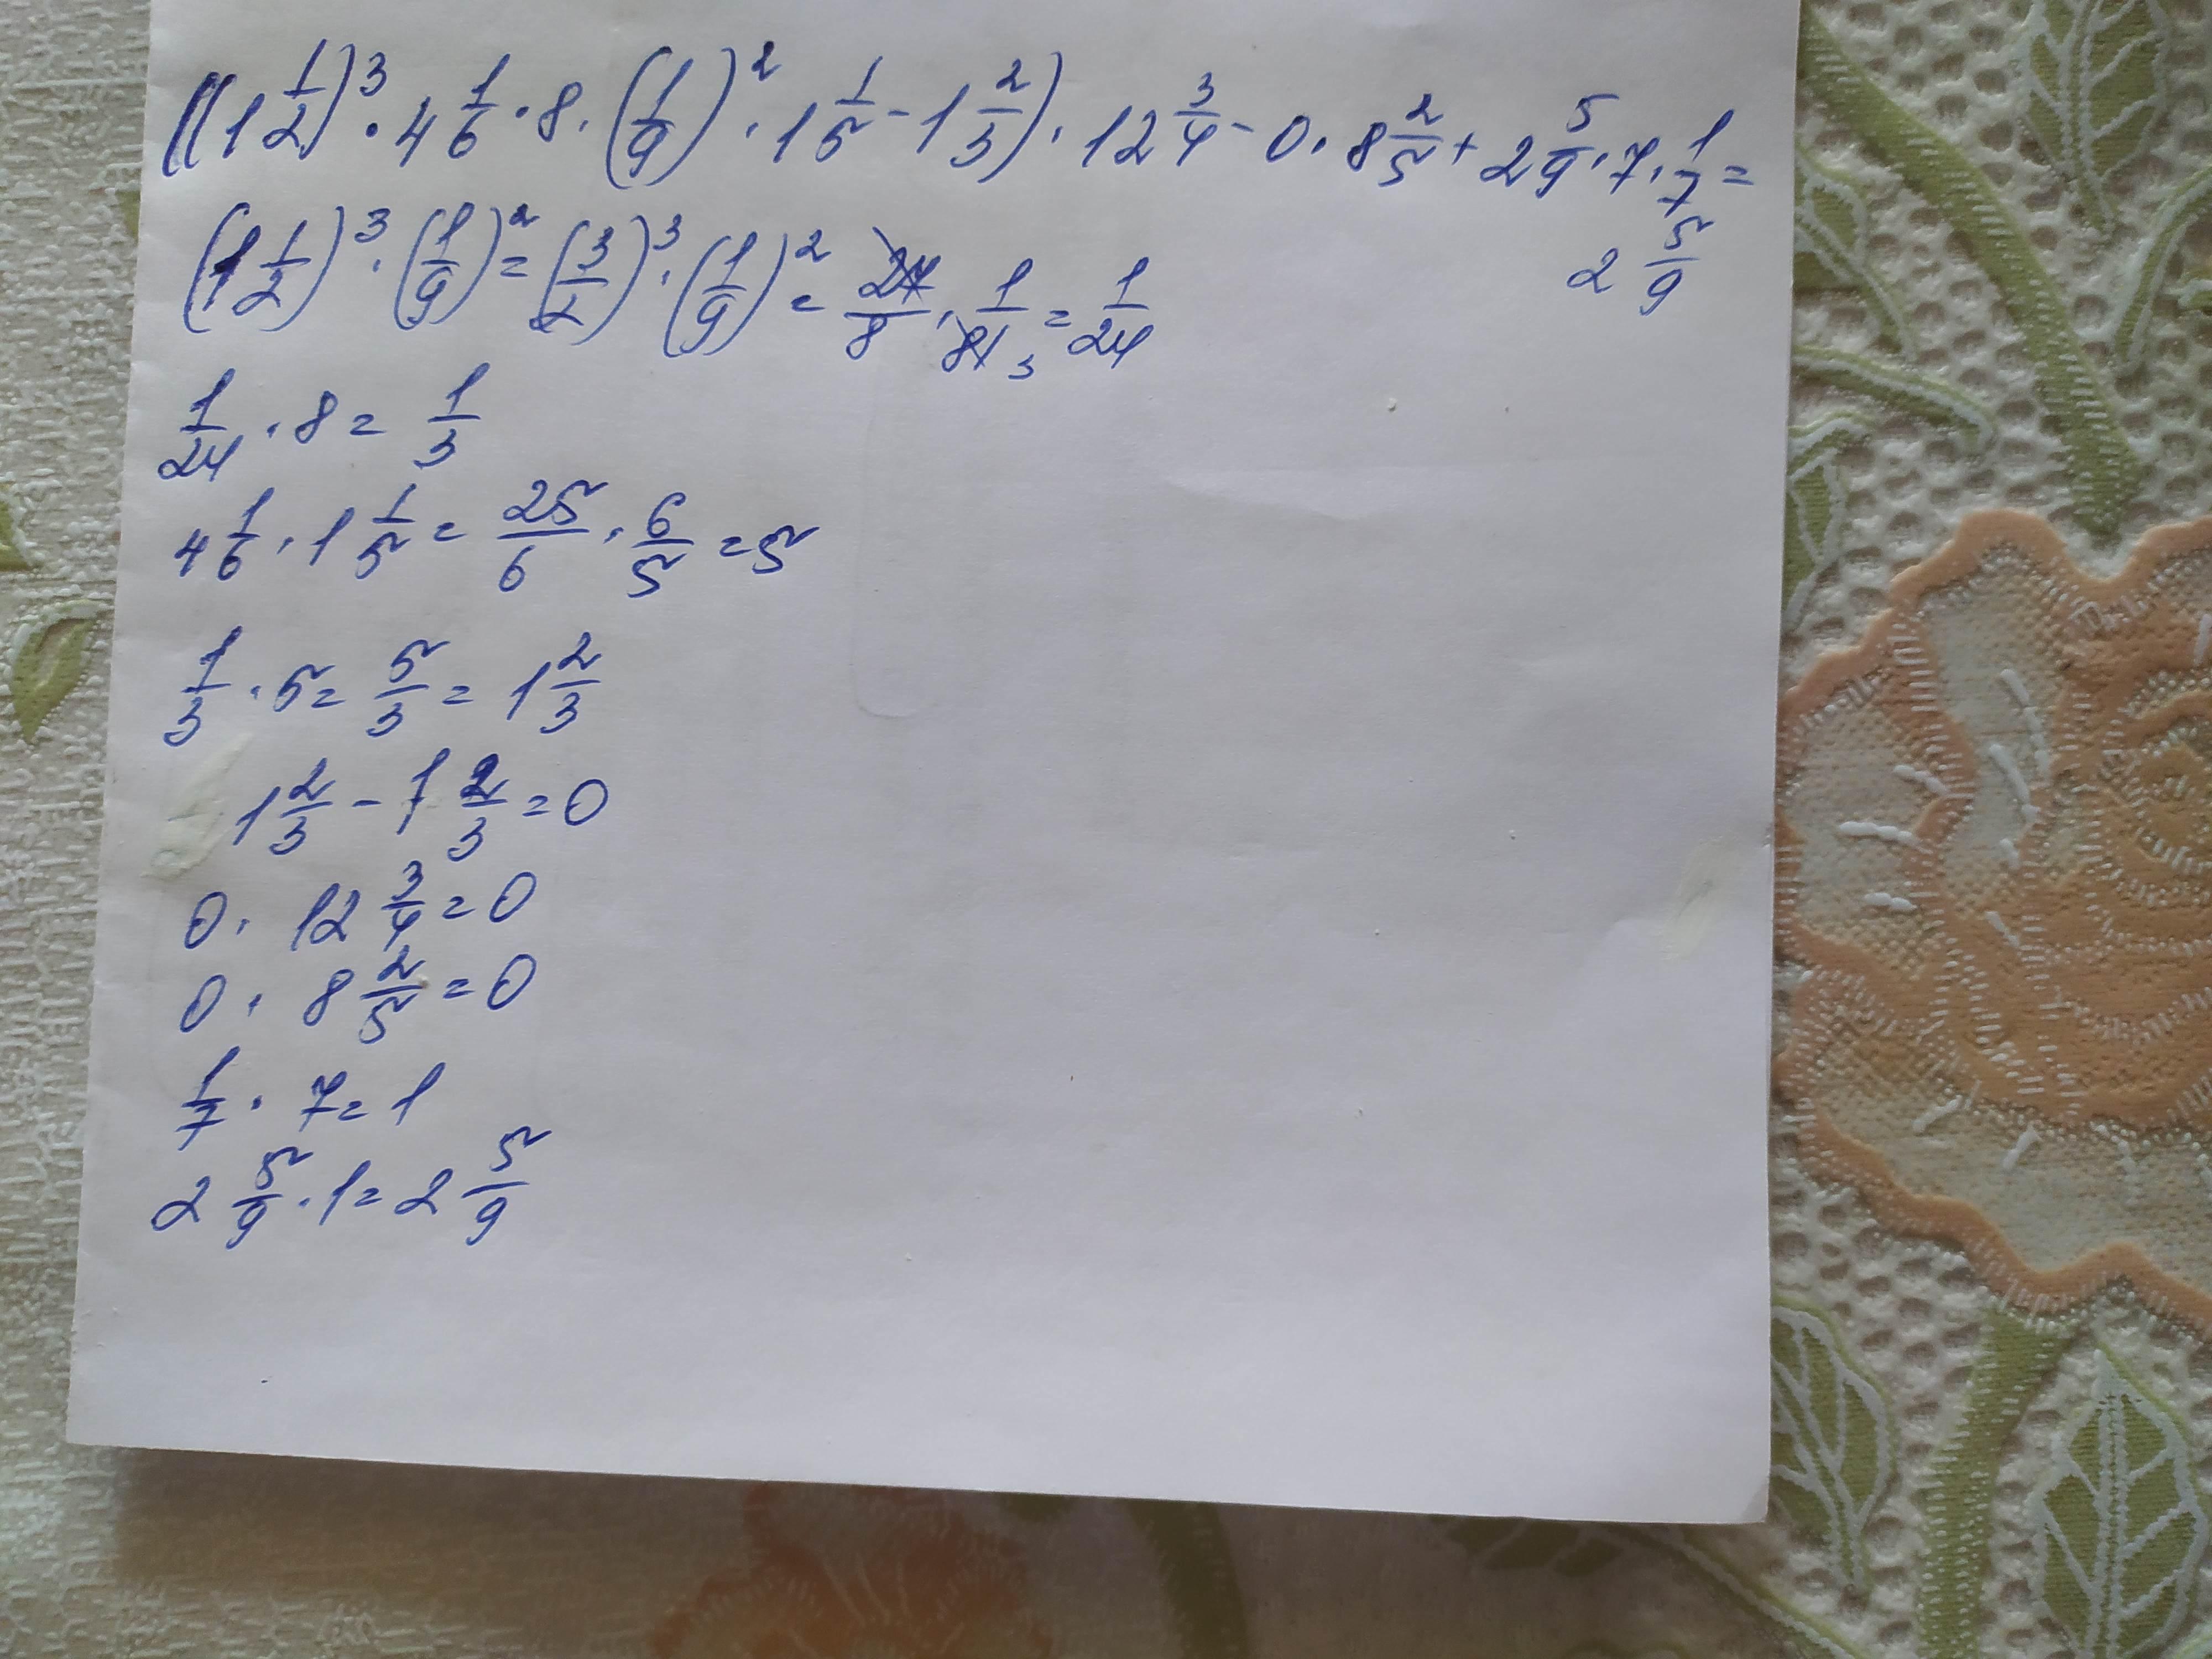 ((1 1/2)^3 · 4 1/6 · 8 · (1/9)^2 · 1 1/5 - 1 2/3) · 12 3/4 - 0 · 8 2/5 + 2 5/9 · 7 · 1/7 =
2 5/9
(1 1/2)^3 · (1/9)^2 = (3/2)^3 · (1/9)^2 = 27/8 · 1/81 3 = 1/24
1/24 · 8 = 1/3
4 1/6 · 1 1/5 = 25/6 · 6/5 = 5
1/3 · 5 = 5/3 = 1 2/3
1 2/3 - 1 2/3 = 0
0 · 12 3/4 = 0
0 · 8 2/5 = 0
1/7 · 7 = 1
2 5/9 · 1 = 2 5/9